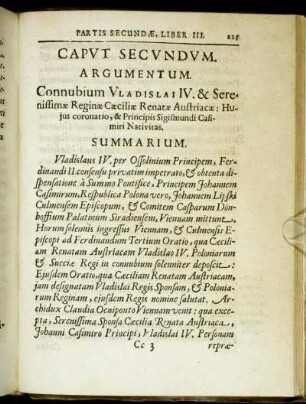 PARTIS SECUNDÆ, LIBER III. 215
CAPVT SECVNDVM.
ARGUMENTUM.
Connubium VLADISLAI IV. & Sere-
nissimæ Reginæ Cæciliæ Renatæ Austriacæ: Hu-
jus coronatio, & Principis Sigismundi Casi-
miri Nativitas.
SUMMARIUM.
Vladislaus IV. per Ossolinium Principem, Fer-
dinandi II. consensu privatim impetrato, & obtenta di-
spensatione à Summo Pontifice, Principem Johannem
Casimirum, Respublica Polona verò, Johannem Lipski
Culmensem Episcopum, & Comitem Casparum Dön-
hoffium Palatinum Siradiensem, Viennam mittunt.
Horum solennis ingressus Viennam, & Culmensis E-
piscopi ad Ferdinandum Tertium Oratio, qua Cæcili-
am Renatam Austriacam Vladislao IV. Poloniarum
& Sueciæ Regi in connubium solenniter deposcit.
Ejusdem Oratio, qua Cæciliam Renatam Austriacam,
jam designatam Vladislai Regis Sponsam, & Polonia-
rum Reginam, ejusdem Regis nomine salutat. Ar-
chidux Claudia Oeniponto Viennam venit: qua exce-
pta, Serenissima Sponsa Cæcilia Renata Austriaca,
Johanni Casimiro Principi, Vladislai IV. Personam
Cc 3 repræ-